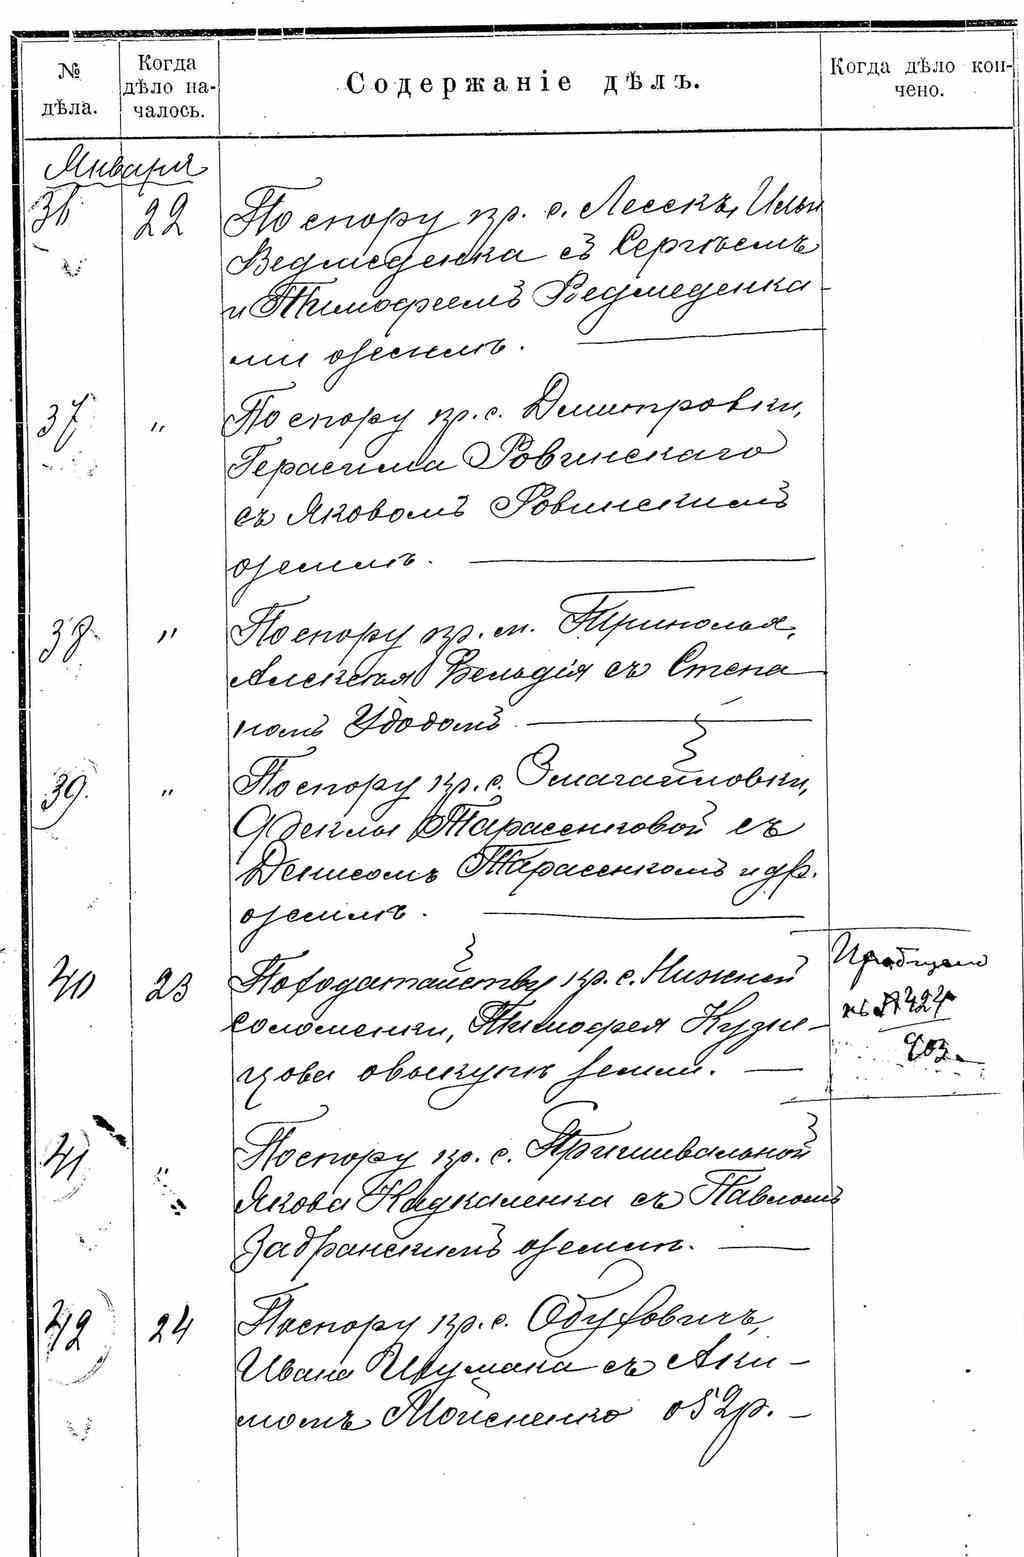 № дѣла.
Когда дѣло началось.
Содержаніе дѣлъ.
Когда дѣло кончено.
Января
36 22 По спору кр. с. Лесекъ, Ильи
Ведмеденка съ Сергѣемъ
и Тимофеемъ Ведмеденка-
ми о землѣ.
37 " По спору кр. с. Дмитровки,
Герасима Ровинскаго
съ Яковомъ Ровинскимъ
о землѣ.
38 " По спору кр. м. Триполья,
Алексѣя Бельдія съ Степа
номъ Удодомъ
39. " По спору кр. с.
Феклы Тарасенковой съ
Денисомъ Тарасенкомъ и др.
о землѣ.
40 23 По ходатайству кр. с. Нижней
соломенки, Тимофея Кузне-
цова о выкупѣ земли.
Пріобщено
къ № 424
903.
41 " По спору кр. с. Пришивальной
Якова Кадкаленка съ Павломъ
Забранскимъ о землѣ.
42 24 По спору кр. с. Обуховичъ,
Ивана Шумана съ Аки-
момъ Моисеенко о 52 р.